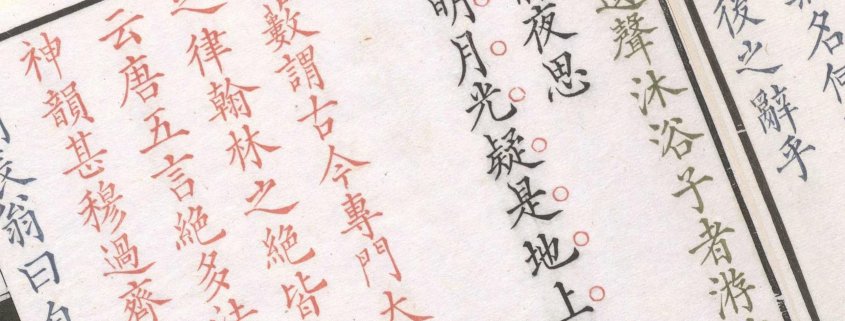 名
後之辭乎
聲沐浴子者游
夜思
明月光疑是地上
籔謂古今專門大
之律翰林之絕皆
云唐五言絕多法
神韻甚穆過齊
長翁曰